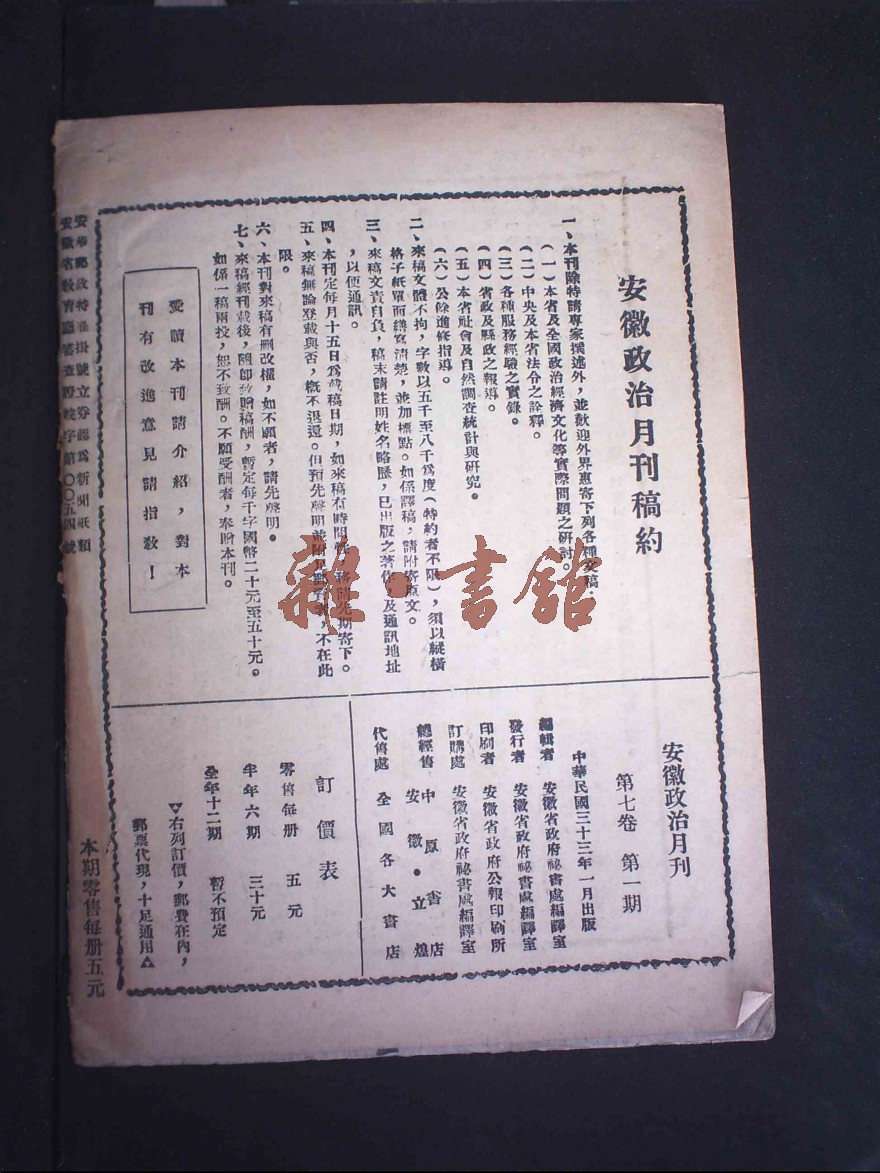 安徽政治月刊稿約
一、本刊除特請專家撰述外，並歡迎外界惠寄下列各種文稿：
（一）本省及全國政治經濟文化等實際問題之研討。
（二）中央及本省法令之詮釋。
（三）各種服務經驗之實錄。
（四）省政及縣政之報導。
（五）本省社會及自然調查統計與研究。
（六）公餘進修指導。
二、來稿文體不拘，字數以五千至八千為度（特約者不限），須以縱橫
格子紙單面繕寫清楚，並加標點。如係譯稿，請附寄原文。
三、來稿文責自負，稿末請註明姓名略歷，已出版之著作，及通訊地址
，以便通訊。
四、本刊定每月十五日為截稿日期，如來稿有時間性，務請先期寄下。
五、來稿無論登載與否，概不退還。但預先聲明並附足郵寄者，不在此
限。
六、本刊對來稿有刪改權，如不願者，請先聲明。
七、來稿經刊載後，隨即致贈稿酬，暫定每千字國幣二十元至五十元。
如係一稿兩投，恕不致酬。不願受酬者，奉贈本刊。
愛讀本刊請介紹，對本
刊有改進意見請指教！
安徽政治月刊
第七卷 第一期
中華民國三十三年一月出版
編輯者 安徽省政府祕書處編譯室
發行者 安徽省政府祕書處編譯室
印刷者 安徽省政府公報印刷所
訂購處 安徽省政府祕書處編譯室
總經售 中原書店
安徽·立煌
代售處 全國各大書店
訂價表
零售每册 五元
半年六期 三十元
全年十二期 暫不預定
▽右列訂價，郵費在內，
郵票代現，十足通用△
安華郵政特准掛號立券認為新聞紙類
安徽省教育廳審查證皖字第〇〇五四號
本期零售每册五元
雜·書館